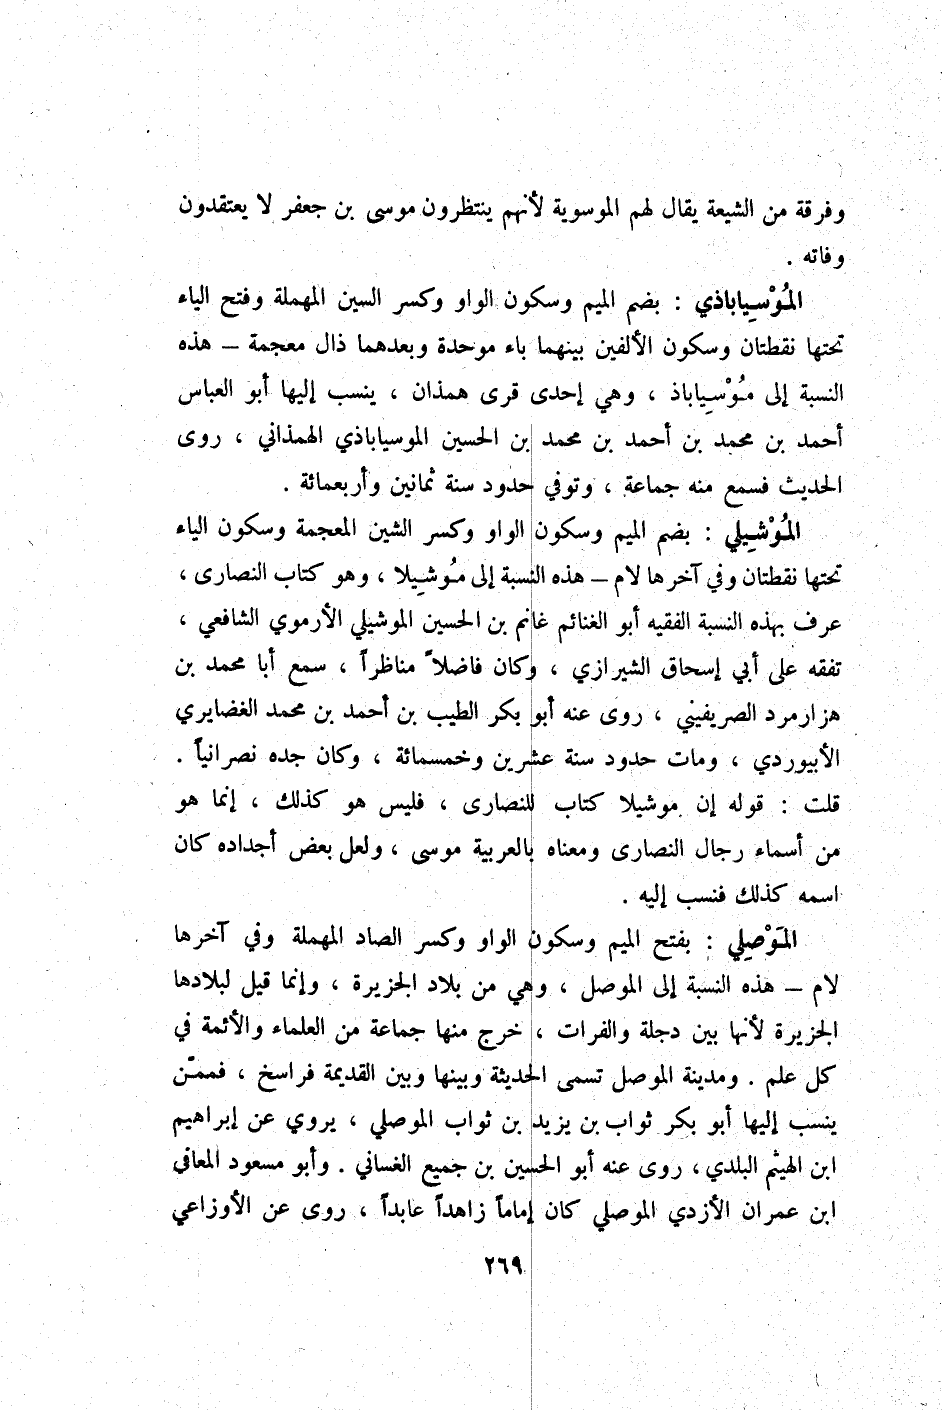 وفرقة من الشيعة يقال لهم الموسوية لأنهم ينتظرون موسى بن جعفر لا يعتقدون
وفاته .
المُوْسِياباذي : بضم الميم وسكون الواو وكسر السين المهملة وفتح الياء
تحتها نقطتان وسكون الألفين بينهما باء موحدة وبعدهما ذال معجمة – هذه
النسبة إلى مُوْسِياباذ ، وهي إحدى قرى همذان ، ينسب إليها أبو العباس
أحمد بن محمد بن أحمد بن محمد بن الحسين الموسياباذي الهمذاني ، روى
الحديث فسمع منه جماعة ، وتوفي حدود سنة ثمانين وأربعمائة .
المُوْشِيلي : بضم الميم وسكون الواو وكسر الشين المعجمة وسكون الياء
تحتها نقطتان وفي آخرها لام – هذه النسبة إلى مُوشِيلا ، وهو كتاب النصارى ،
عرف بهذه النسبة الفقيه أبو الغنائم غانم بن الحسين الموشيلي الأرموي الشافعي ،
تفقه على أبي إسحاق الشيرازي ، وكان فاضلاً مناظراً ، سمع أبا محمد بن
هزارمرد الصريفيني ، روى عنه أبو بكر الطيب بن أحمد بن محمد الغضايري
الأبيوردي ، ومات حدود سنة عشرين وخمسمائة ، وكان جده نصرانياً .
قلت : قوله إن موشيلا كتاب للنصارى ، فليس هو كذلك ، إنما هو
من أسماء رجال النصارى ومعناه بالعربية موسى ، ولعل بعض أجداده كان
اسمه كذلك فنسب إليه .
المَوْصِلي : بفتح الميم وسكون الواو وكسر الصاد المهملة وفي آخرها
لام – هذه النسبة إلى الموصل ، وهي من بلاد الجزيرة ، وإنما قيل لبلادها
الجزيرة لأنها بين دجلة والفرات ، خرج منها جماعة من العلماء والأئمة في
كل علم . ومدينة الموصل تسمى الحديثة وبينها وبين القديمة فراسخ ، فممّن
ينسب إليها أبو بكر ثواب بن يزيد بن ثواب الموصلي ، يروي عن إبراهيم
ابن الهيثم البلدي ، روى عنه أبو الحسين بن جميع الغساني . وأبو مسعود المعافى
ابن عمران الأزدي الموصلي كان إماماً زاهداً عابداً ، روى عن الأوزاعي
٢٦٩